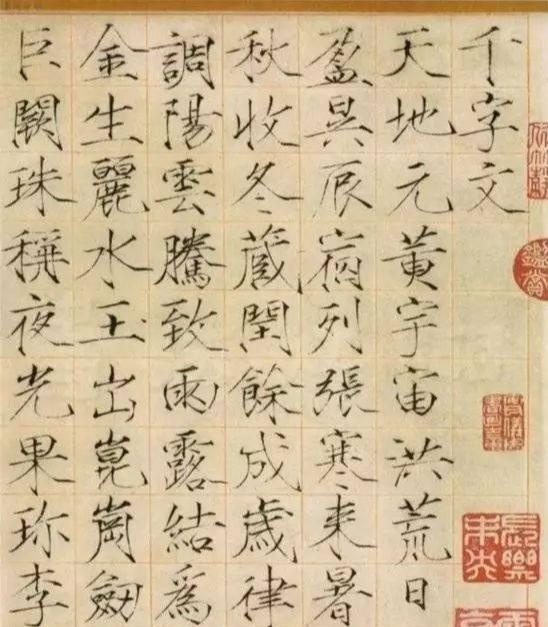 千字文
天地元黃宇宙洪荒日
盈昃辰宿列張寒来暑
秋收冬蔵閏餘成歲律
調陽雲騰致雨露結爲
金生麗水玉出崑崗劒
巨闕珠稱夜光果珎李
鑑賞